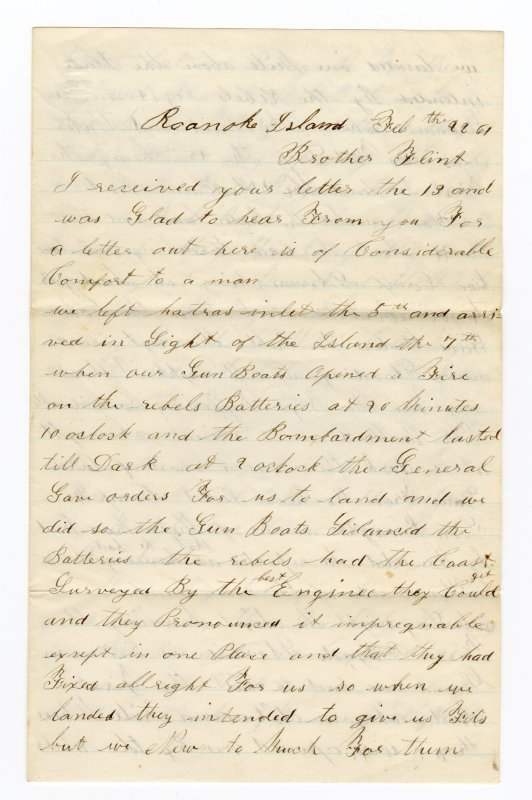 Roanoke Island Feb th 22 61
Brother Flint
I received your letter the 13 and
was Glad to hear From you For
a letter out here is of Considerable
Comfort to a man
we left hatras inlet the 5th and arri-
ved in Sight of the Island the 7th
when our Gun Boats opened a Fire
on the rebels Batteries at 20 Minutes
10 oclock and the Bombardment lasted
till Dark at 2 oclock the General
Gave orders For us to land and we
did so the Gun Boats Silansed the
Batteries the rebels had the Coast
Surveyed By the best Enginee they Could get
and they Pronounsed it impregnable
except in one Place and that they had
Fixed allright For us so when we
landed they intended to give us Fits
but we New to Much For them